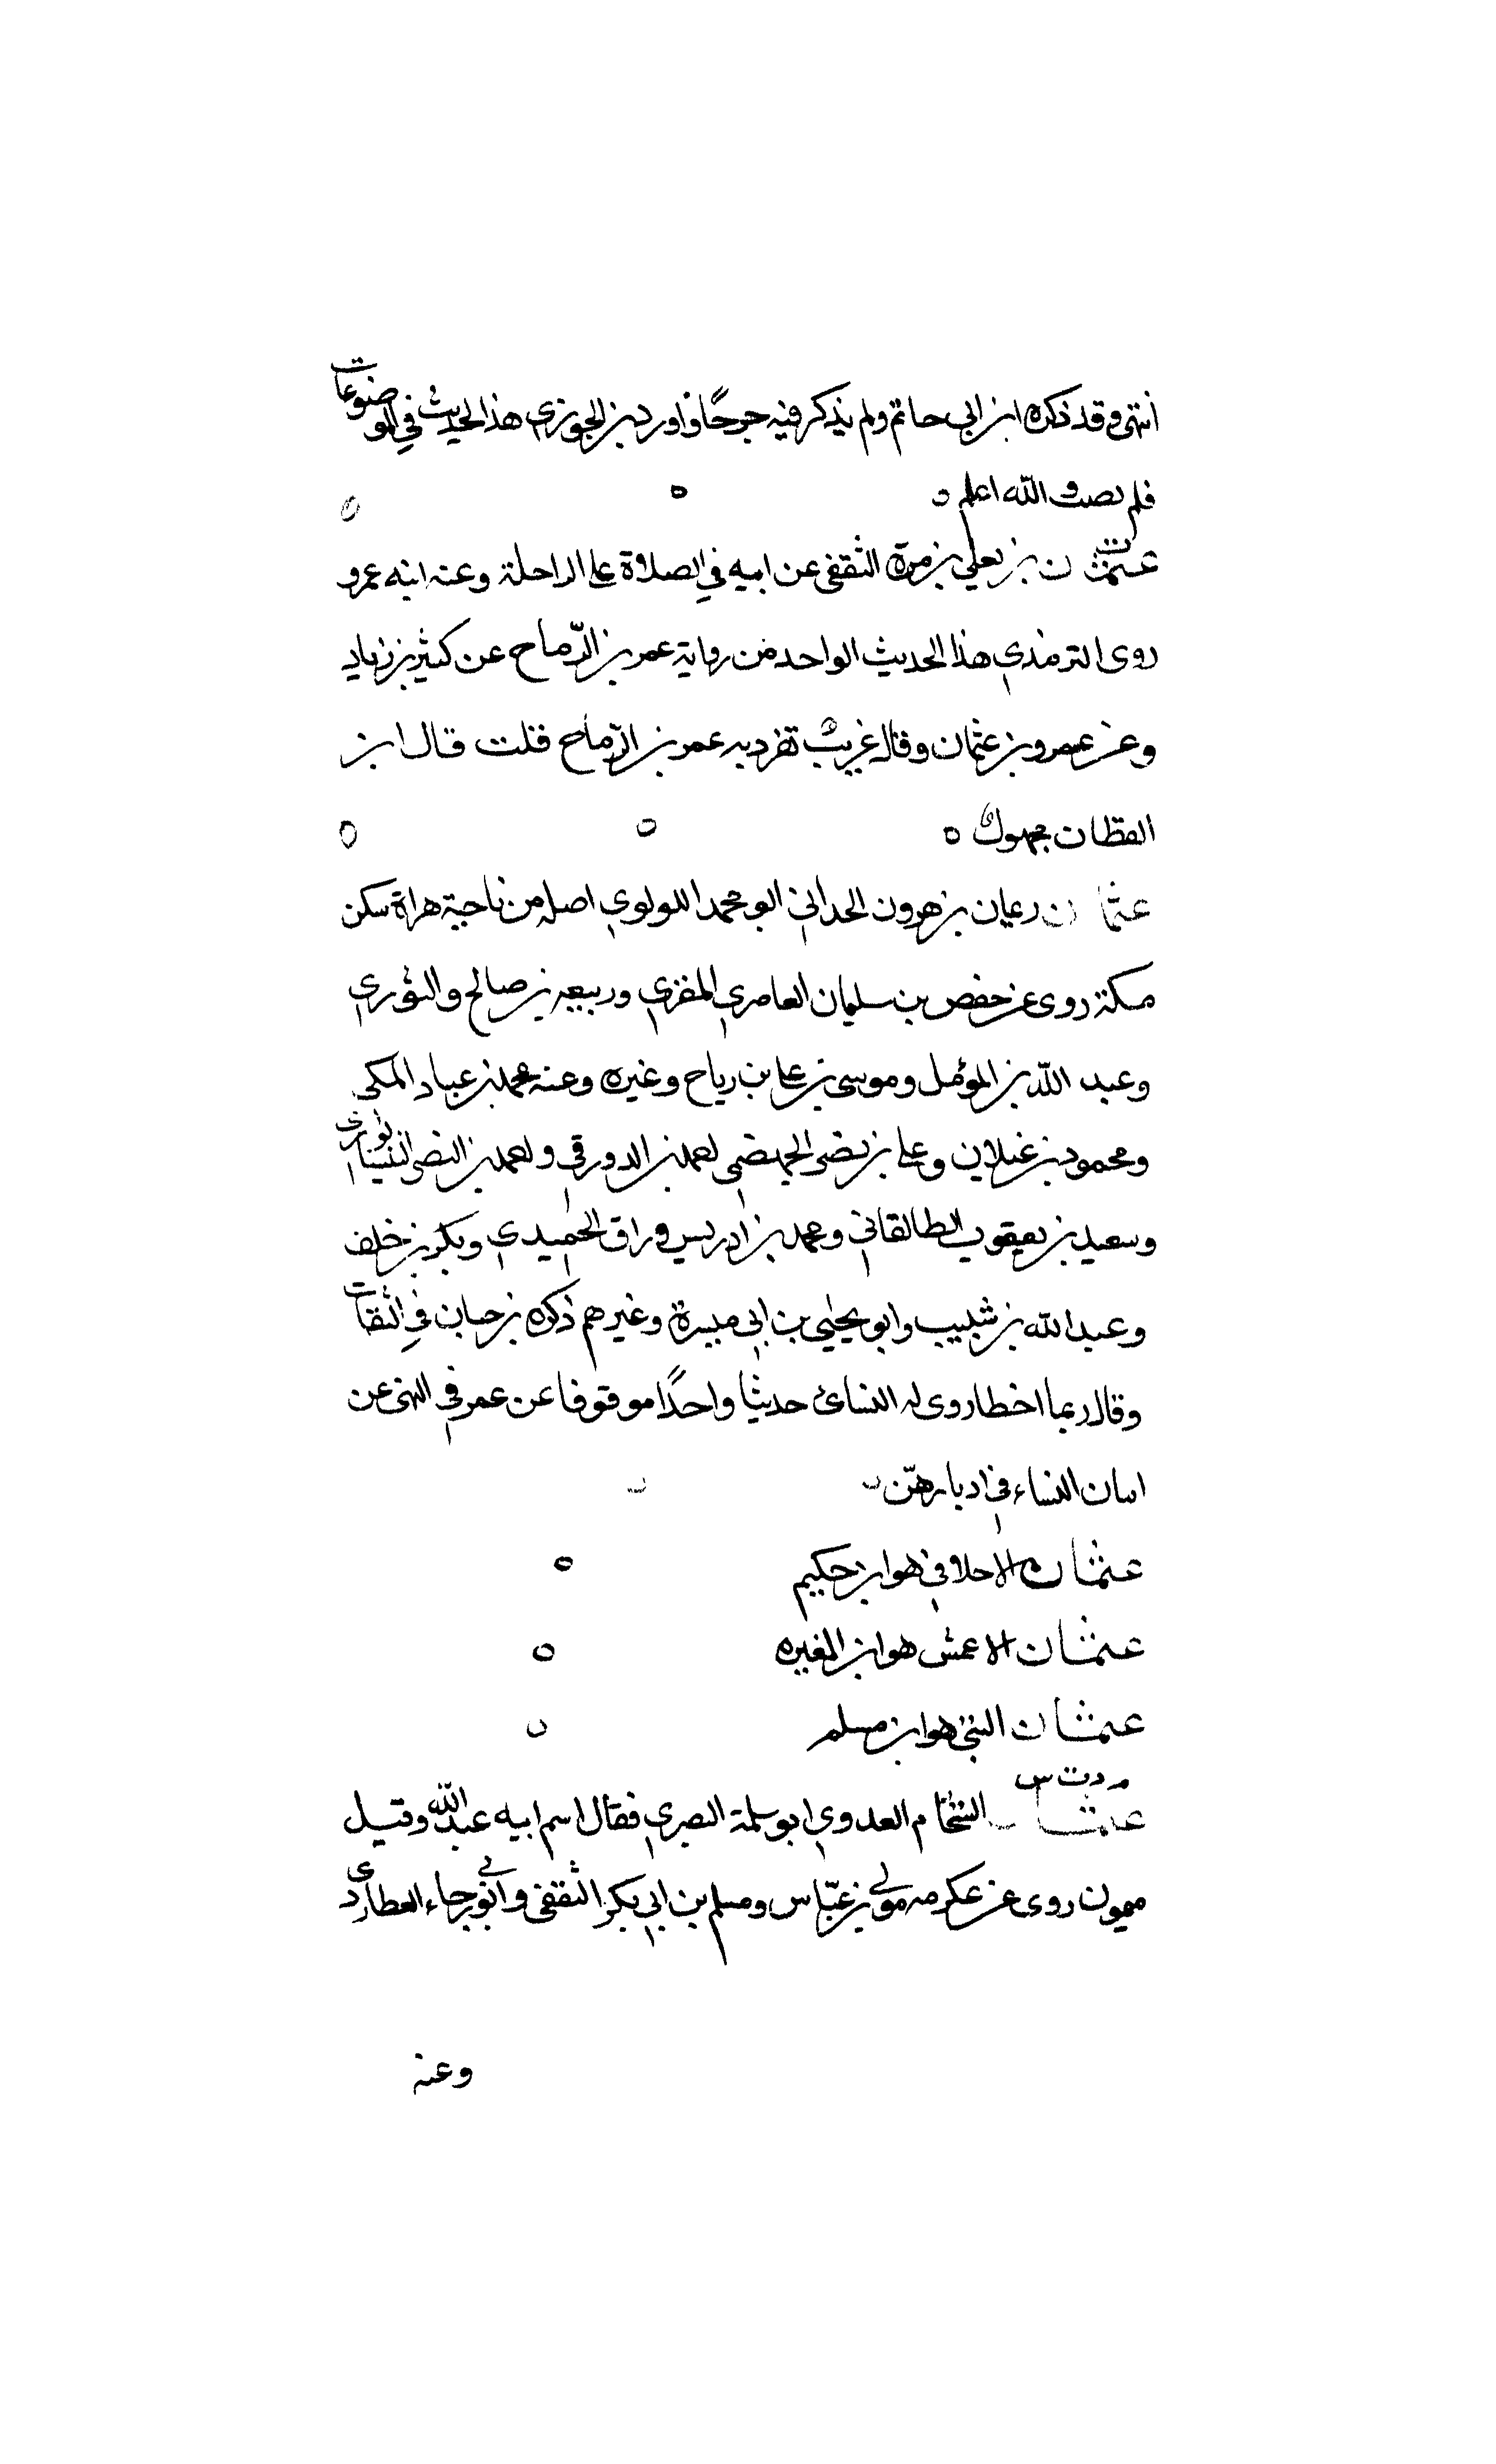 انتهى وقد ذكره ابن ابي حاتم ولم يذكر فيه جرحًا واورد بن الجوزي هذا الحديث في الموضوعات
فلم يصب والله اعلم ه
ت
عثمان بن يعلي بن مرة الثقفى عن ابيه في الصلاة على الراحلة وعنه ابنه عمرو
روى الترمذي هذا الحديث الواحد من رواية عمر بن الرّماح عن كثير بن زياد
وعن عمرو بن عثمان وقال غريب تفرد به عمر بن الرّماح قلت قال ابن
القطان مجهول ه
عثمان بن هرون الحداني ابو محمد اللولوي اصله من ناحية هراة سكن
مكة روى عن حفص بن سليمان العامري المقري وربيعه بن صالح والثوري
وعبد الله بن المؤمل وموسى بن على بن رياح وغيره وعنه محمد بن عباد المكى
ومحمود بن غيلان وعلى بن نضر الجهضمى احمد بن الدورقي واحمد بن النضر النيسابوري
وسعيد بن يعقوب الطالقاني ومحمد بن ادريس وراق الحميدي وبكر بن خلف
وعبد الله بن شبيب وابو يحيي بن ابي ميسرة وغيرهم ذكره بن حبان في الثقات
وقال ربما اخطا روى له النسائ حديثا واحدًا موقوفا عن عمر في النهى عن
اتيان النساء في ادبارهنّ
عثمان الاحلافي هو ابن حكيم
عثمان الاعمش هو ابن المغيره
عثمان البتي هو ابن مسلم
م د ت س
عثمان الشحّام العدوي ابو سلمة البصري فقال اسم ابيه عبد الله وقيل
ميمون روى عن عكرمه مولى بن عبّاس ومسلم بن ابي بكر الثقفى وابو رجاء العطاردى
وعنه